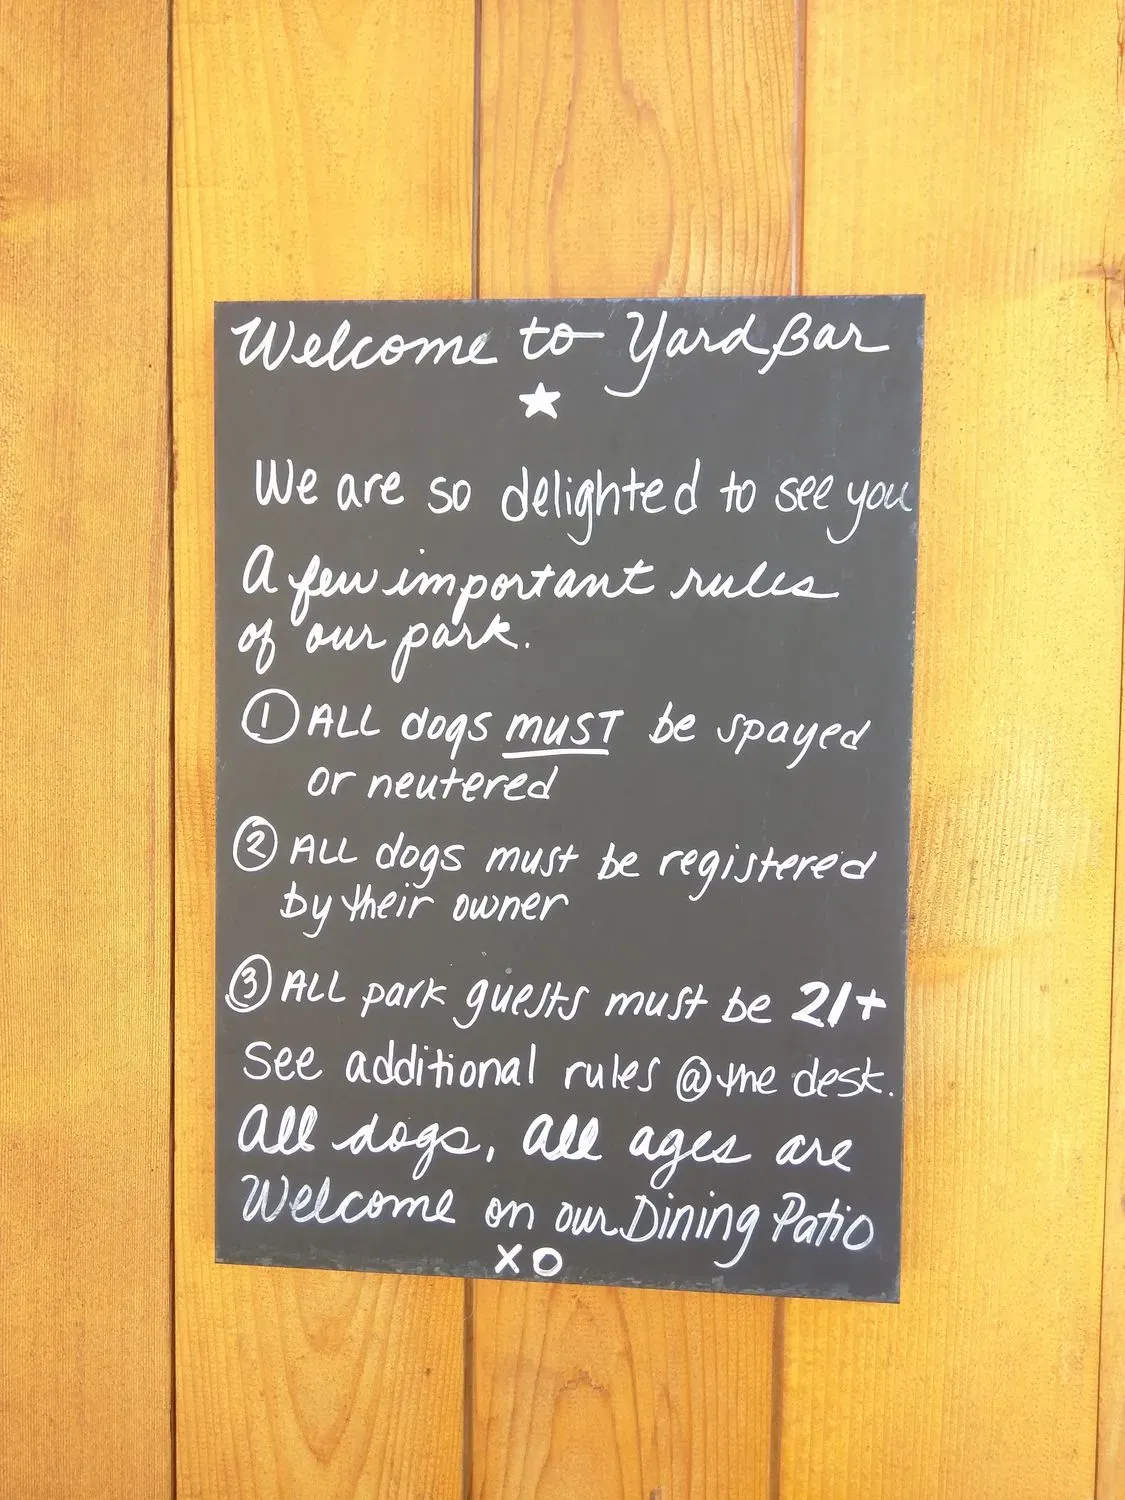 Welcome to Yard Bar
We are so delighted to see you
A few important rules
of our park.
① ALL dogs MUST be spayed
or neutered
② ALL dogs must be registered
by their owner
③ ALL park guests must be 21+
See additional rules @ the desk.
All dogs, All ages are
Welcome on our Dining Patio
XO